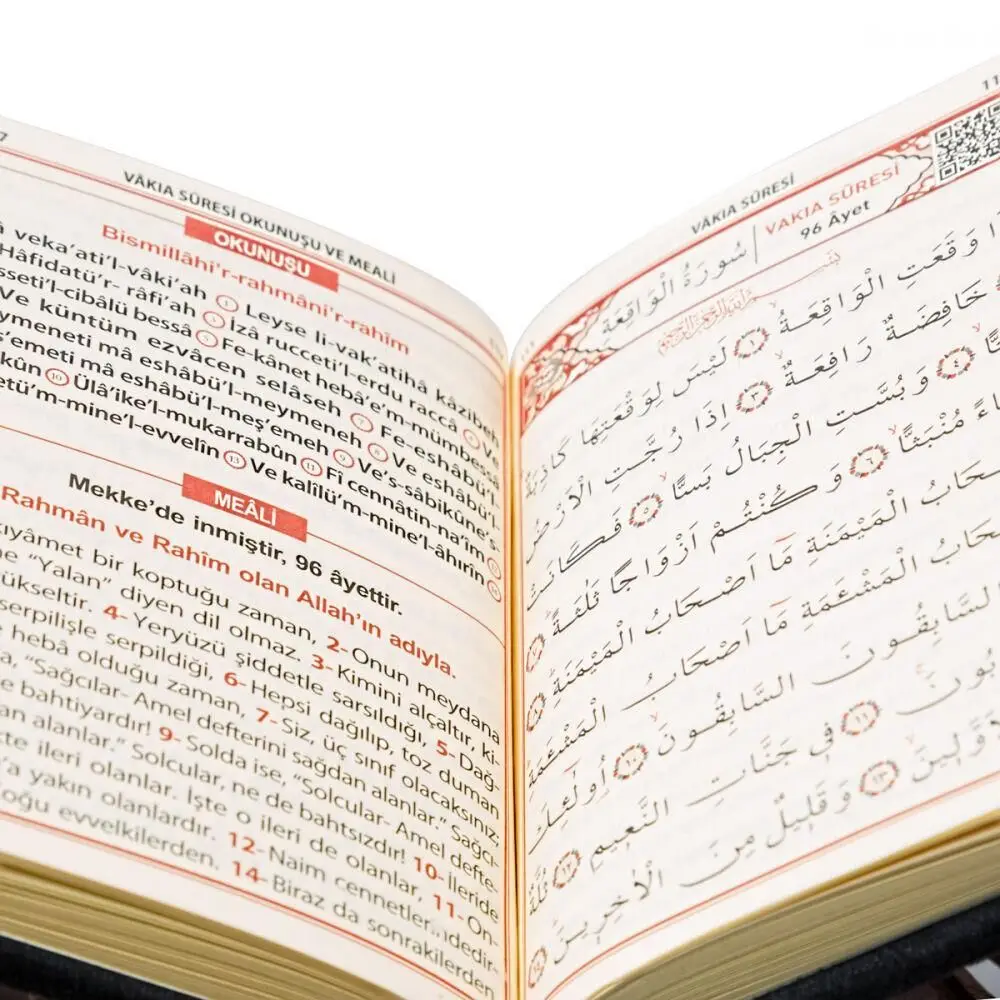 7
VÂKIA SÛRESİ OKUNUŞU VE MEALİ
OKUNUŞU
Bismillâhi'r-rahmâni'r-rahîm
veka'ati'l-vâki'ah ① Leyse li-vak'atihâ kâzibeh
Hâfidatü'r- râfi'ah ③ İzâ rucceti'l-erdu raccâ ④ Ve
sseti'l-cibâlü bessâ ⑤ Fe-kânet hebâ'e'm-mümbessâ
Ve küntüm ezvâcen selâseh ⑦ Fe-eshâbü'l-
ymeneti mâ eshâbü'l-meymeneh ⑧ Ve eshâbü'l-
ş'emeti mâ eshâbü'l-meş'emeh ⑨ Ve's-sâbikûne's-
kûn ⑩ Ülâ'ike'l-mukarrabûn ⑪ Fî cennâtin-na'îm ⑫
etü'm-mine'l-evvelîn ⑬ Ve kalîlü'm-mine'l-âhırîn ⑭
MEÂLİ
Mekke'de inmiştir, 96 âyettir.
Rahmân ve Rahîm olan Allah'ın adıyla.
kıyâmet bir koptuğu zaman, 2- Onun meydana
ne "Yalan" diyen dil olmaz. 3- Kimini alçaltır, ki-
ükseltir. 4- Yeryüzü şiddetle sarsıldığı, 5- Dağ-
serpilişle serpildiği, 6- Hepsi dağılıp, toz duman
heba olduğu zaman, 7- Siz, üç sınıf olacaksınız;
a, "Sağcılar- Amel defterini sağdan alanlar." Sağcı-
e bahtiyardır! 9- Solda ise, "Solcular- Amel defte-
an alanlar." Solcular, ne de bahtsızdır! 10- İleride
te ileri olanlar. İşte o ileri de olanlar, 11- On-
'a yakın olanlardır. 12- Naim cennetlerindedir-
oğu evvelkilerden. 14- Biraz da sonrakilerden
11
VÂKIA SÛRESİ
سُورَةُ الْوَاقِعَةِ | VAKIA SÛRESİ
96 Âyet
وَقَعَتِ الْوَاقِعَةُ ﴿١﴾ لَيْسَ لِوَقْعَتِهَا كَاذِبَةٌ
خَافِضَةٌ رَافِعَةٌ ﴿٣﴾ اِذَا رُجَّتِ الْاَرْضُ
﴿٤﴾ وَبُسَّتِ الْجِبَالُ بَسًّا ﴿٥﴾ فَكَانَتْ
مُنْبَثًّا ﴿٦﴾ وَكُنْتُمْ اَزْوَاجًا ثَلٰثَةً ﴿٧﴾
حَابُ الْمَيْمَنَةِ مَا اَصْحَابُ الْمَيْمَنَةِ ﴿٨﴾
حَابُ الْمَشْـَٔمَةِ مَا اَصْحَابُ الْمَشْـَٔمَةِ
السَّابِقُونَ السَّابِقُونَ ﴿١٠﴾ اُولٰٓئِكَ
بُونَ ﴿١١﴾ فِي جَنَّاتِ النَّعِيمِ ﴿١٢﴾ ثُلَّةٌ
وَّلِينَ ﴿١٣﴾ وَقَلِيلٌ مِنَ الْاٰخِرِينَ ﴿١٤﴾